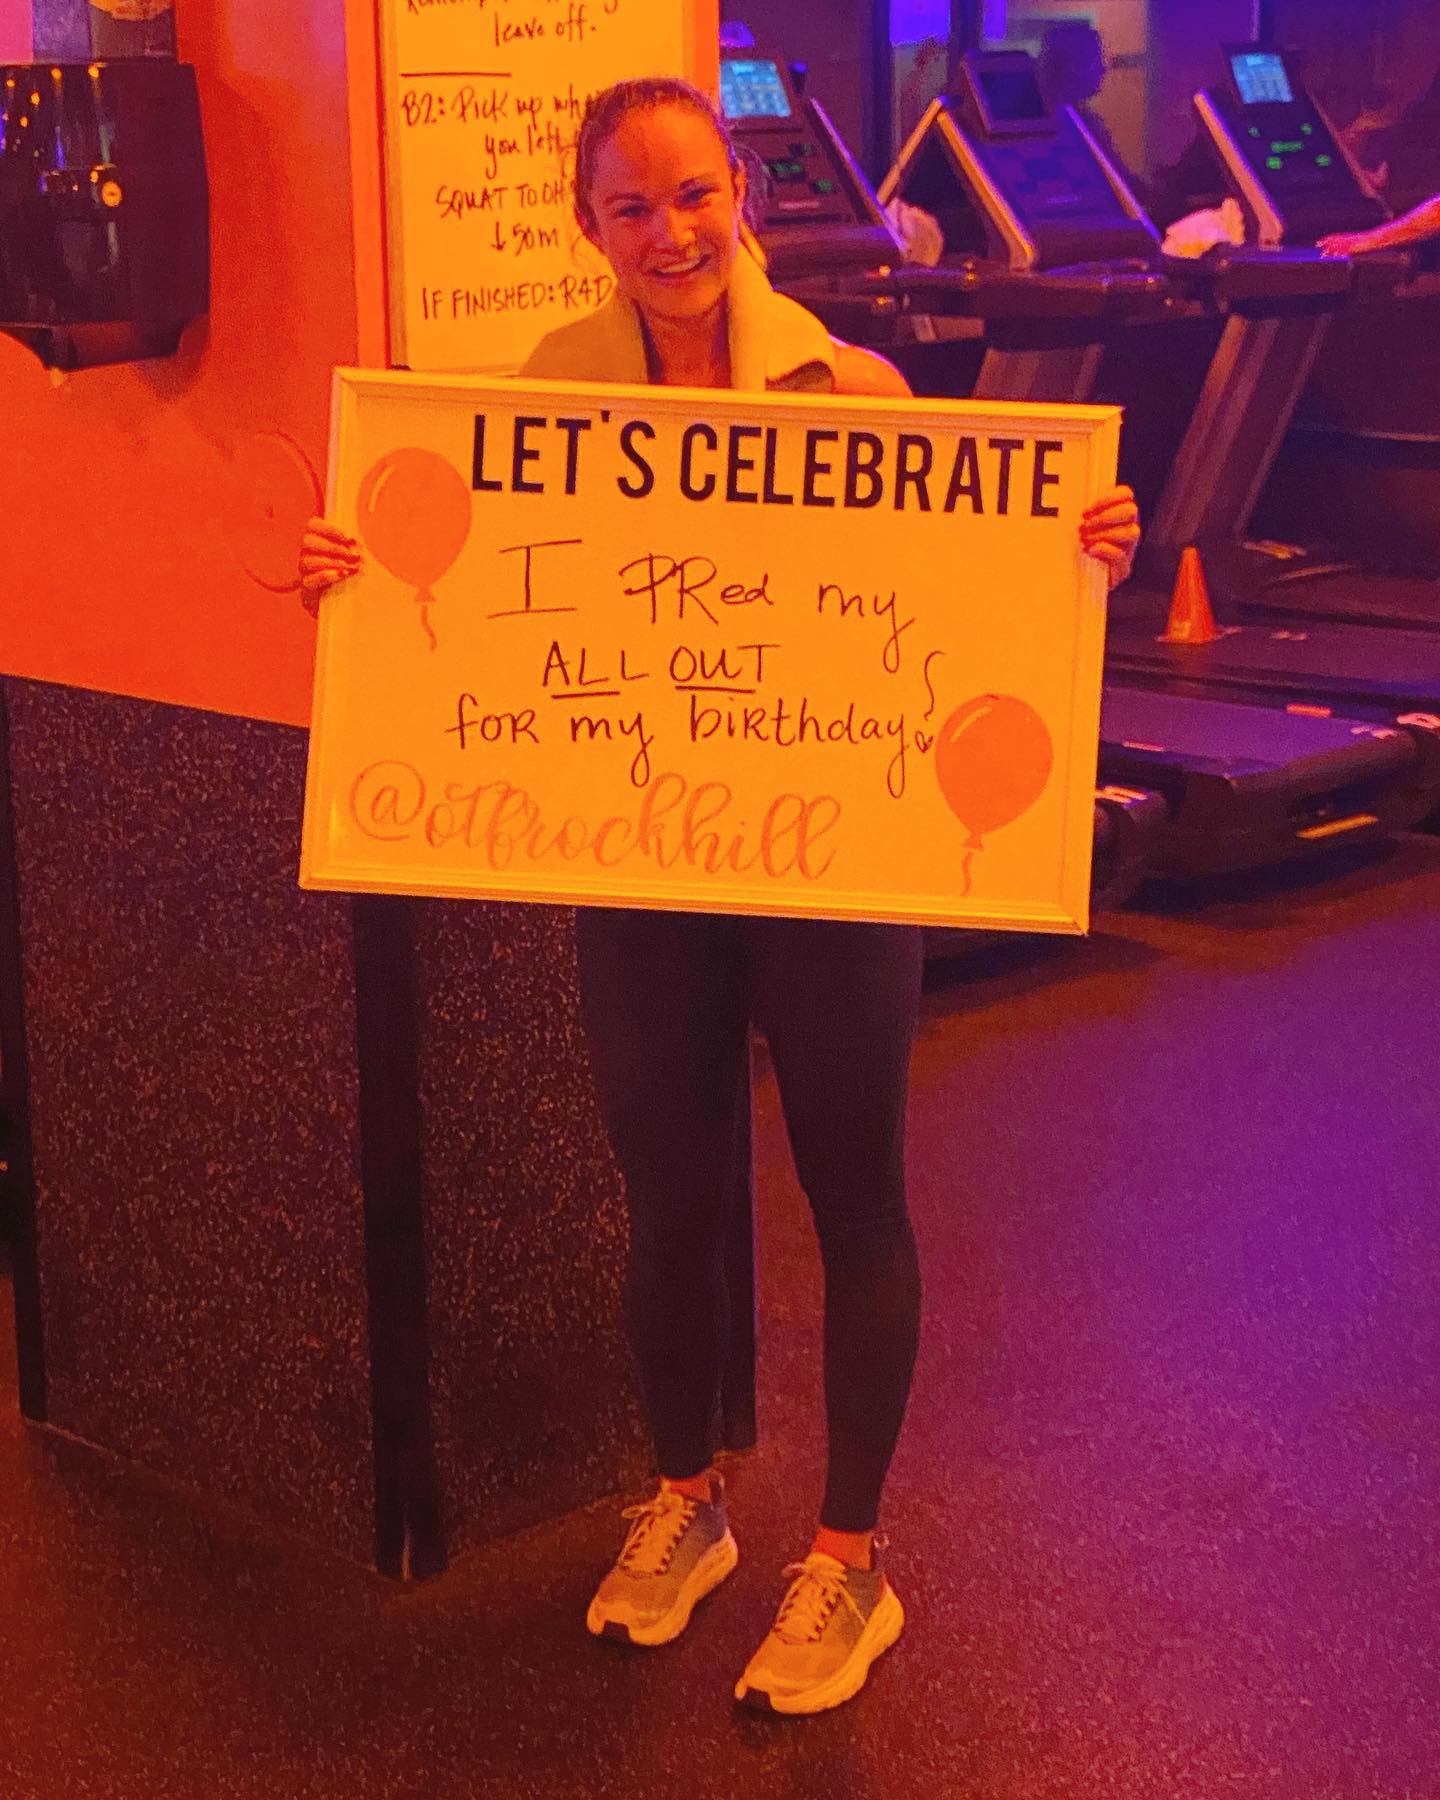 leave off.
B2: Pick up
you left
SQUAT TO
↓ 50m
IF FINISHED: R4D
LET'S CELEBRATE
I PRed my
ALL OUT
for my birthday!
@otfrockhill